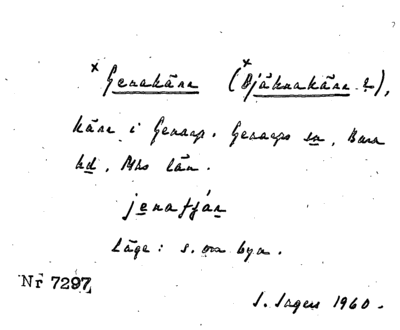 × Genakärr (× Bjäknakärr ?),
kärr i Genarp, Genarps sn, Bara
hd, Mhs län.
jenatjár
Läge: s. om byn.
Nr 7297
S. Ingers 1960.